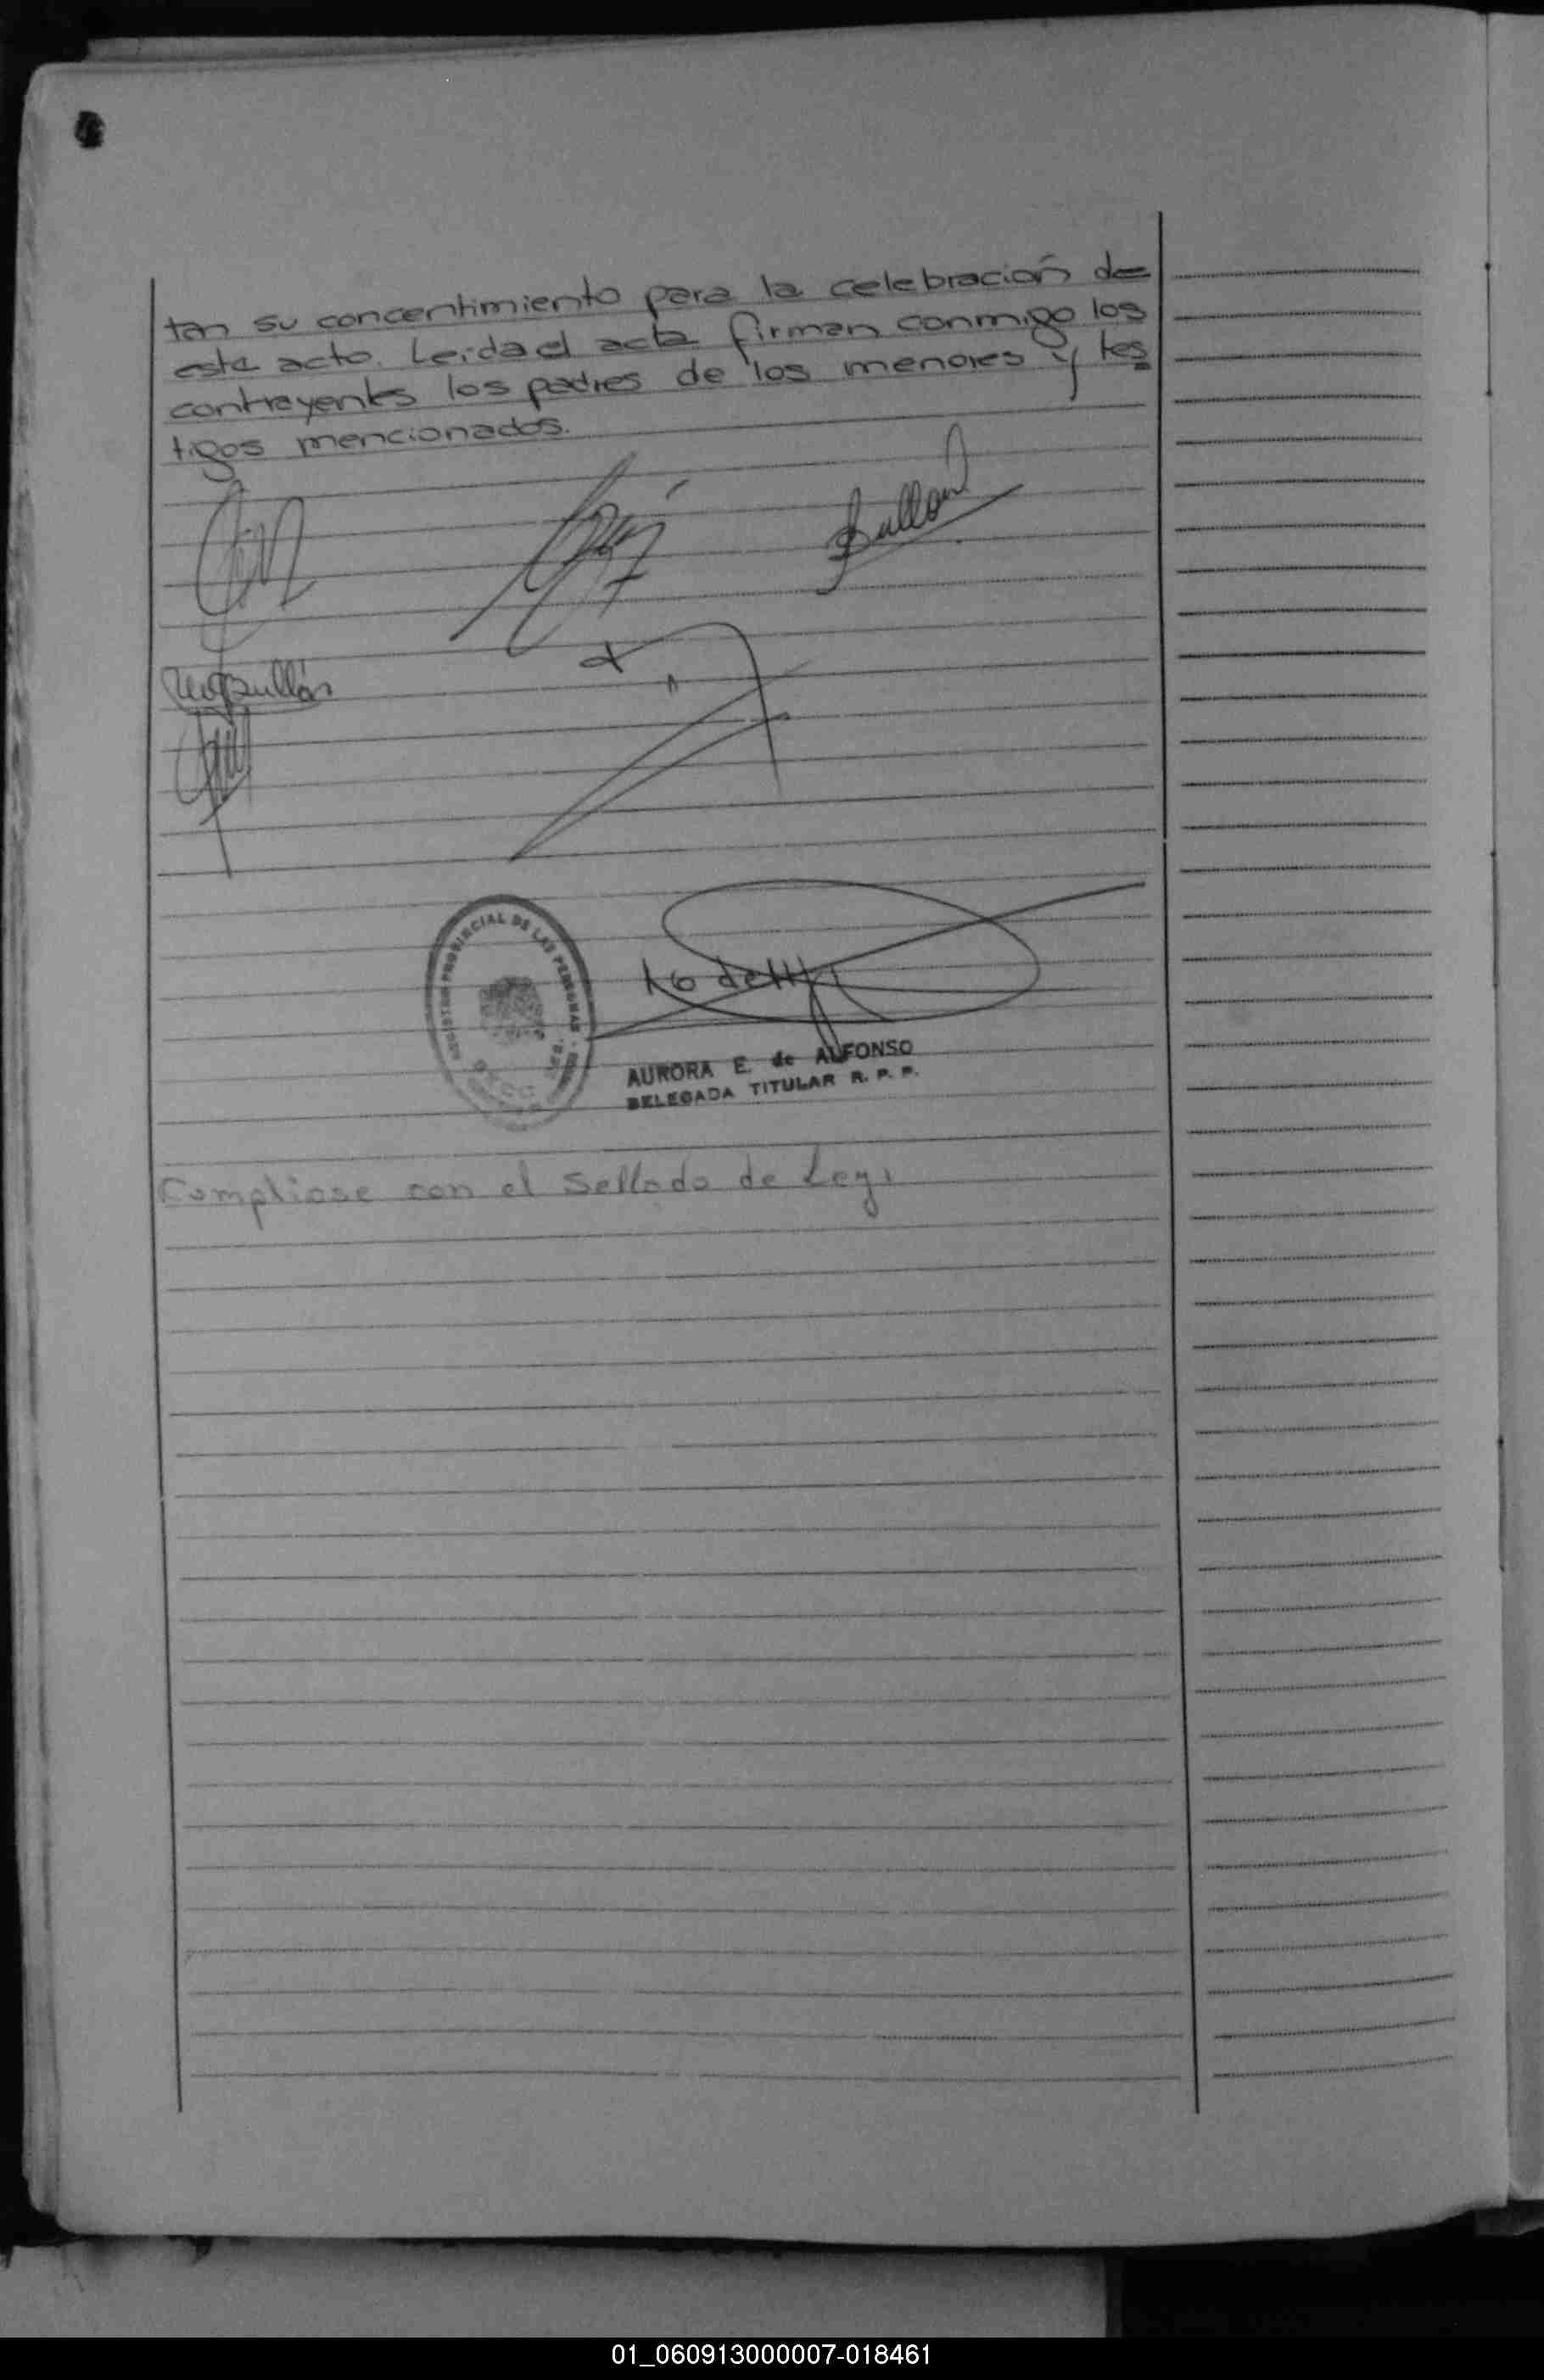 tan su concentimiento para la celebracion de
este acto. Leida el acta firman conmigo los
contrayentes los padres de los menores y tes
tigos mencionados.
Bullon
Bullón
REGISTRO PROVINCIAL DE LAS PERSONAS
AURORA E. de ALFONSO
DELEGADA TITULAR R. P. P.
Compliose con el Sellado de Ley.
01_060913000007-018461